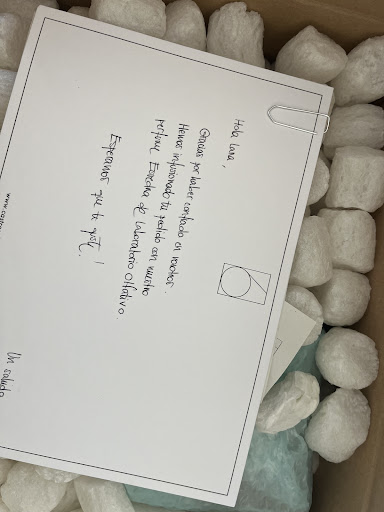 Hola Lara,
Gracias por haber confiado en nosotros.
Hemos infusionado tu pedido con nuestro
perfume Esencia de Laboratorio Olfativo.
Esperamos que te guste!
Un saludo
www.